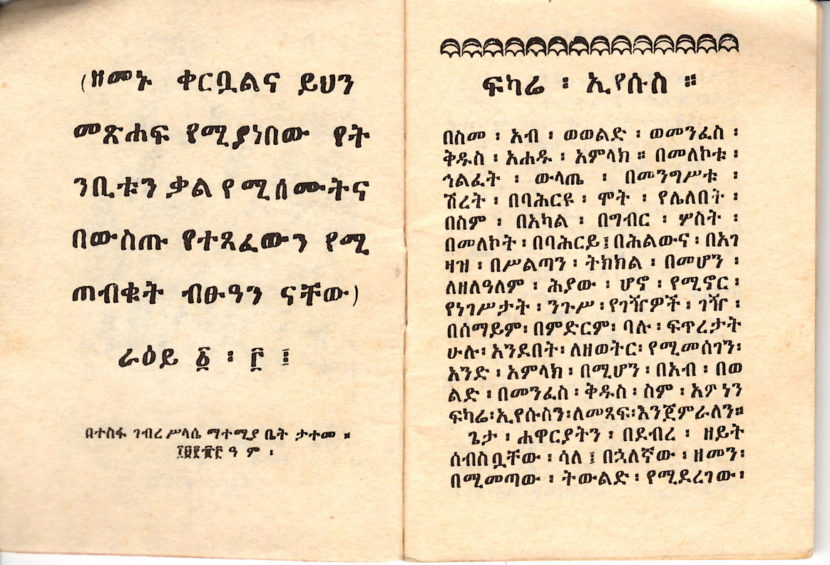 (ዘመኑ ቀርቧልና ይህን
መጽሐፍ የሚያነበው የት
ንቢቱን ቃል የሚሰሙትና
በውስጡ የተጻፈውን የሚ
ጠብቁት ብፁዓን ናቸው)
ራዕይ ፩ ፡ ፫ ፤
በተስፋ ገብረ ሥላሴ ማተሚያ ቤት ታተመ ።
ዓ ም ፡
ፍካሬ ፡ ኢየሱስ ።
በስመ ፡ አብ ፡ ወወልድ ፡ ወመንፈስ ፡
ቅዱስ ፡ አሐዱ ፡ አምላክ ። በመለኮቱ ፡
ኅልፈት ፡ ውላጤ ፡ በመንግሥቱ ፡
ሽረት ፡ በባሕርዩ ፡ ሞት ፡ የሌለበት ፡
በስም ፡ በአካል ፡ በግብር ፡ ሦስት ፡
በመለኮት ፡ በባሕርይ ፤ በሕልውና ፡ በአገ
ዛዝ ፡ በሥልጣን ፡ ትክክል ፡ በመሆን ፡
ለዘለዓለም ፡ ሕያው ፡ ሆኖ ፡ የሚኖር ፡
የነገሥታት ፡ ንጉሥ ፡ የገዥዎች ፡ ገዥ ፡
በሰማይም ፡ በምድርም ፡ ባሉ ፡ ፍጥረታት
ሁሉ ፡ አንደበት ፡ ለዘወትር ፡ የሚመሰገን ፡
አንድ ፡ አምላክ ፡ በሚሆን ፡ በአብ ፡ በወ
ልድ ፡ በመንፈስ ፡ ቅዱስ ፡ ስም ፡ አምነን
ፍካሬ ፡ ኢየሱስን ፡ ለመጻፍ ፡ እንጀምራለን ።
ጌታ ፡ ሐዋርያትን ፡ በደብረ ፡ ዘይት
ሰብስቧቸው ፡ ሳለ ፤ በኋለኛው ፡ ዘመን ፡
በሚመጣው ፡ ትውልድ ፡ የሚደረገው ፡